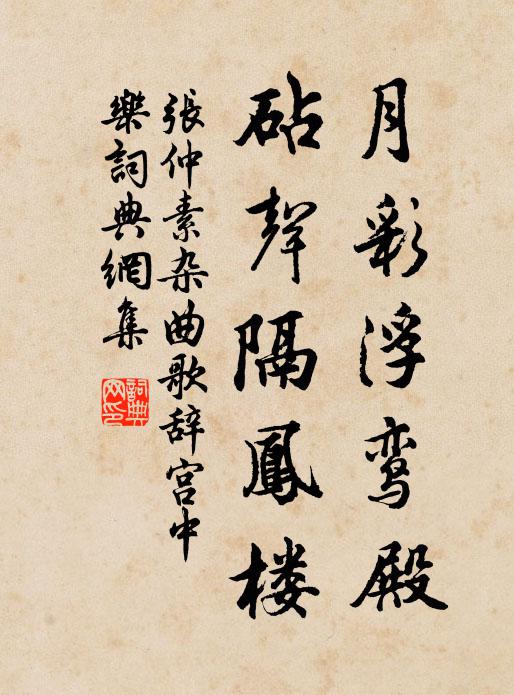 月彩浮鸾殿
砧聲隔鳳楼
張仲素杂曲歌辞宫中
樂詞典網集
詞典网印